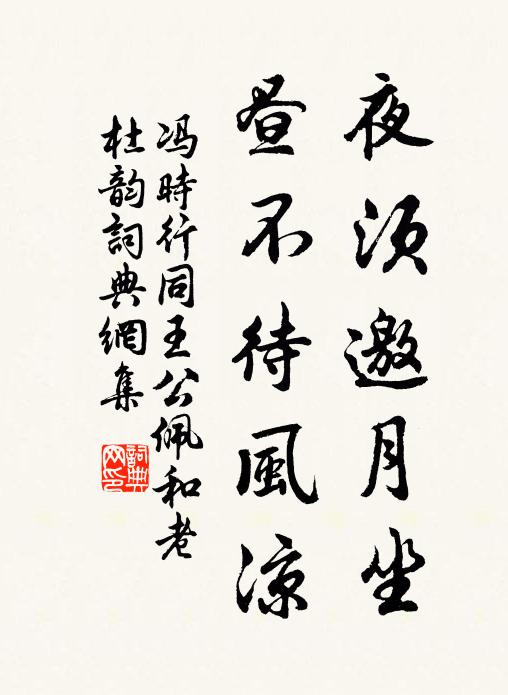 夜須邀月坐
昼不待風涼
冯時行同王公佩和老
杜韵詞典網集
詞典网印